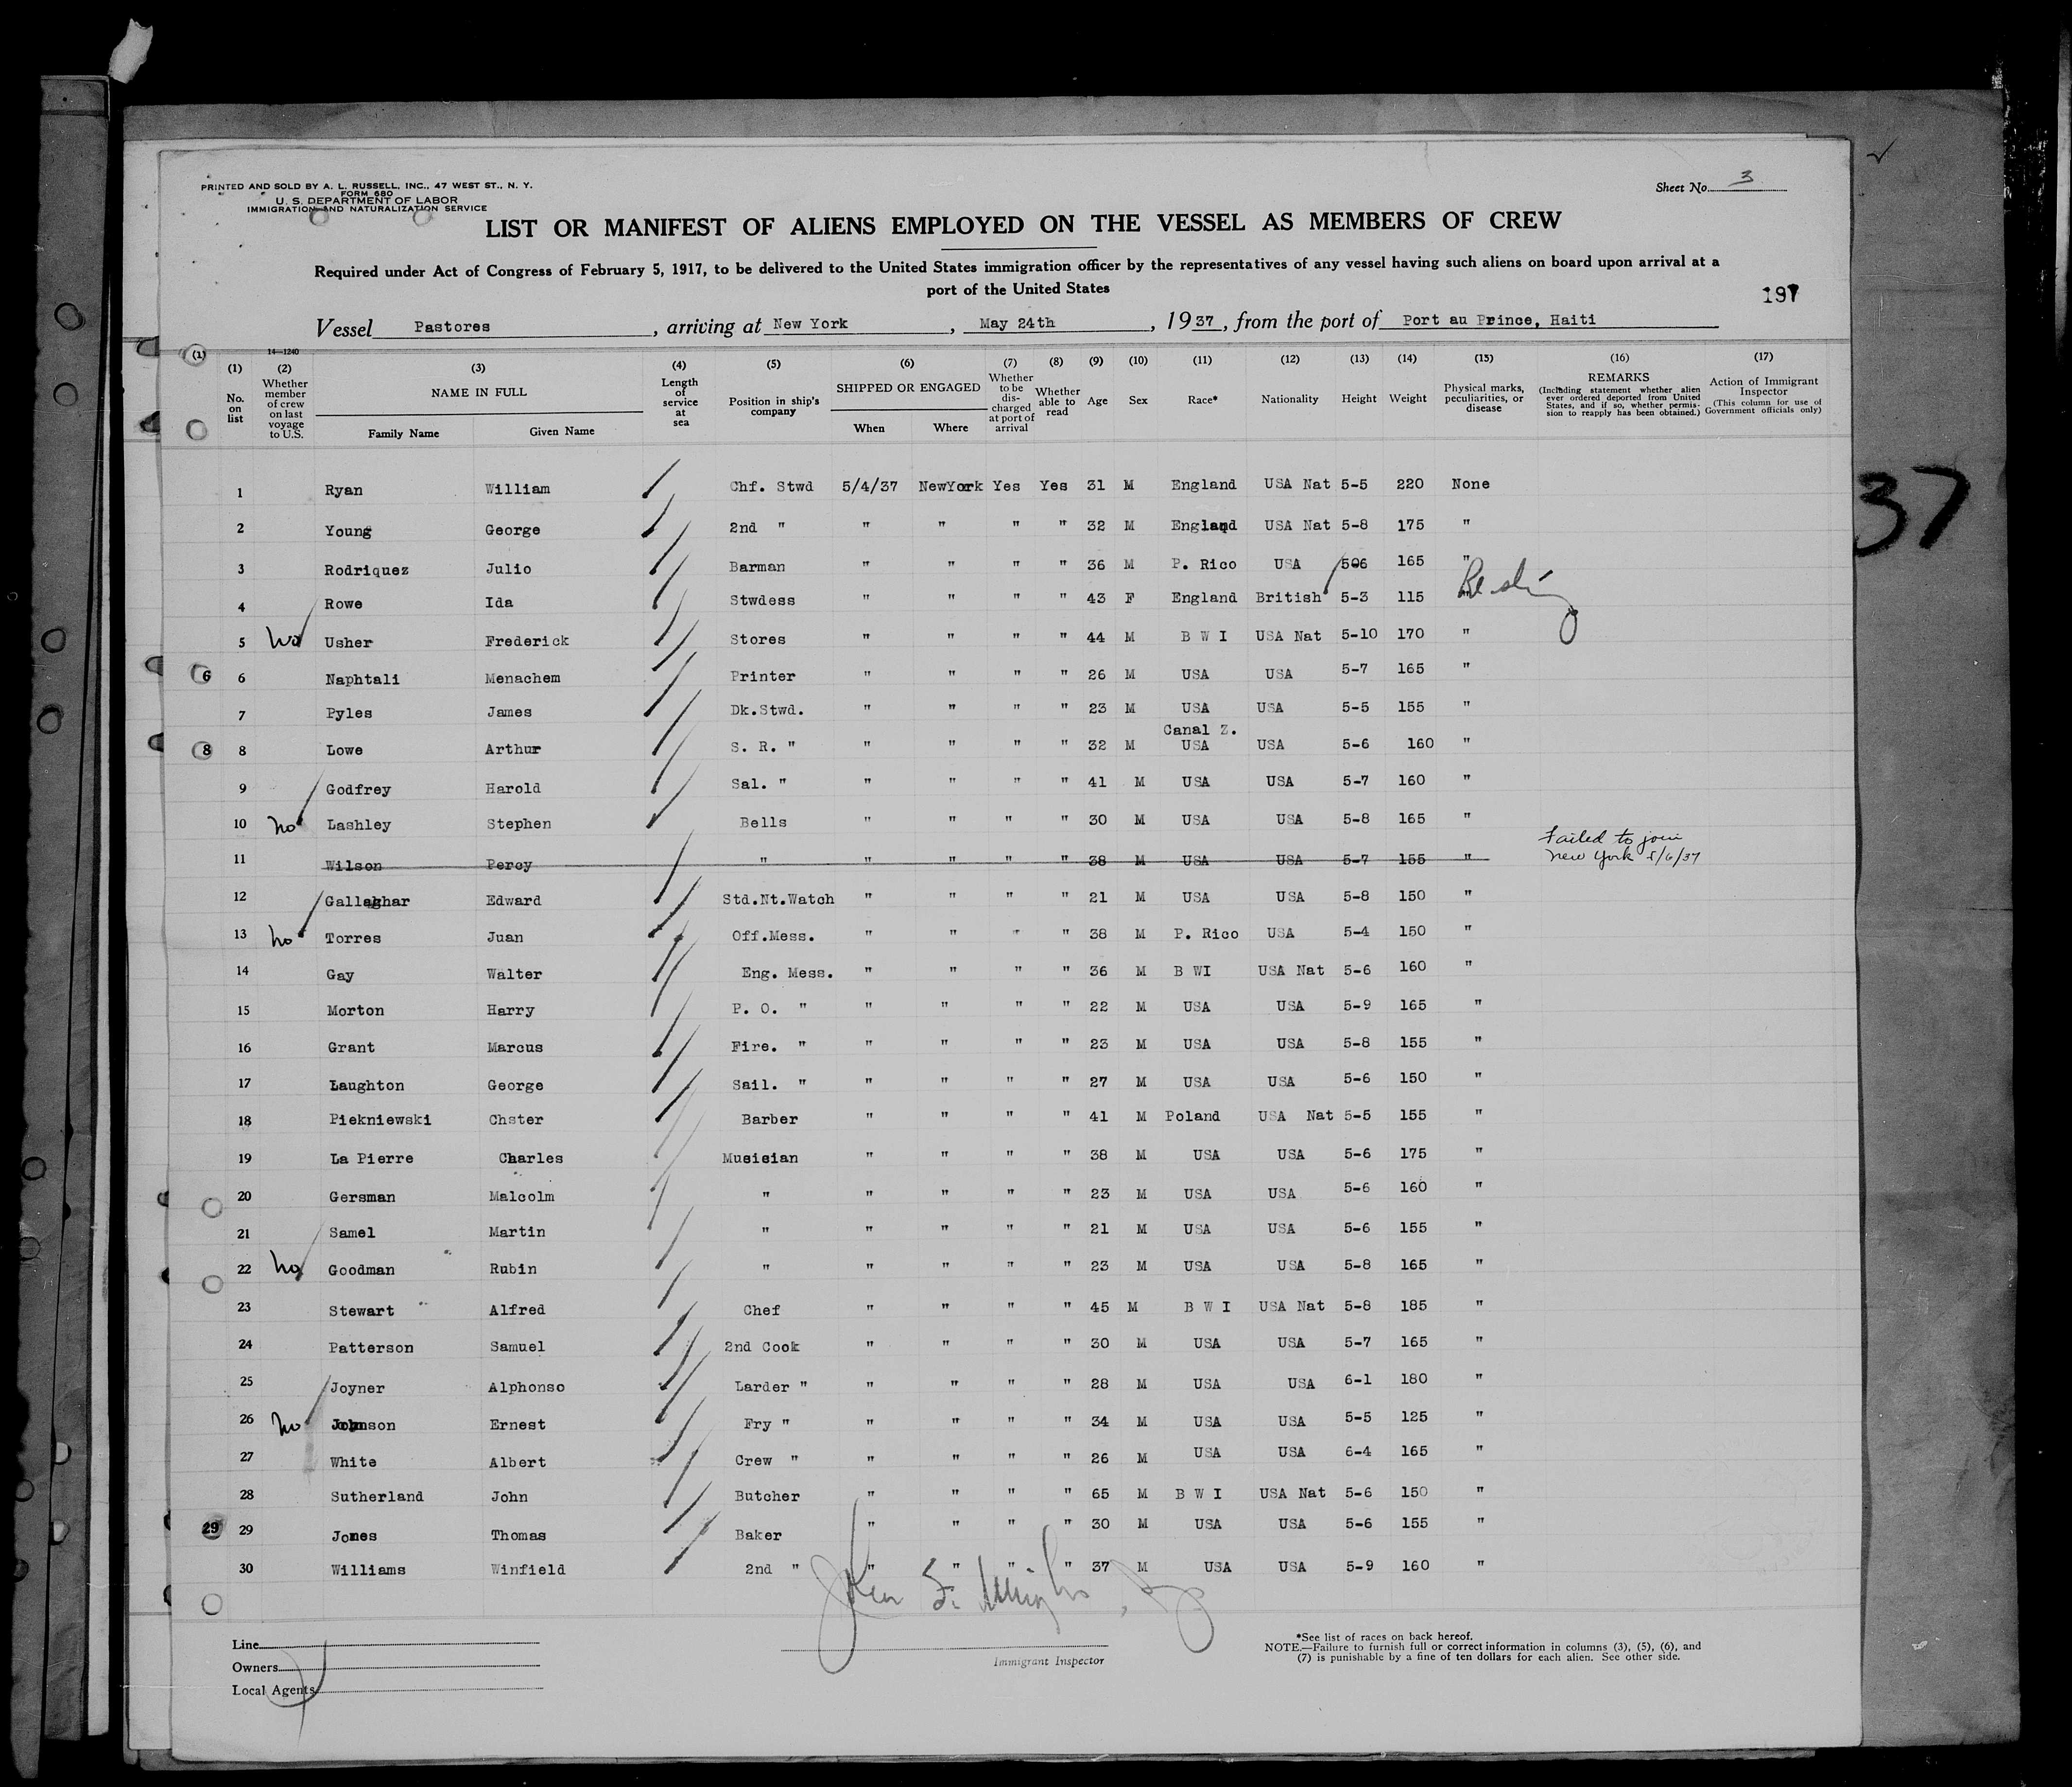 PRINTED AND SOLD BY A. L. RUSSELL, INC., 47 WEST ST., N. Y.
FORM 680
U. S. DEPARTMENT OF LABOR
IMMIGRATION AND NATURALIZATION SERVICE
Sheet No. 3
LIST OR MANIFEST OF ALIENS EMPLOYED ON THE VESSEL AS MEMBERS OF CREW
Required under Act of Congress of February 5, 1917, to be delivered to the United States immigration officer by the representatives of any vessel having such aliens on board upon arrival at a
port of the United States
197
Vessel Pastores, arriving at New York, May 24th, 1937, from the port of Port au Prince, Haiti
37
(1) No. on list
14—1240
(2) Whether member of crew on last voyage to U.S.
(3) NAME IN FULL Family Name Given Name
(4) Length of service at sea
(5) Position in ship's company
(6) SHIPPED OR ENGAGED When Where
(7) Whether to be discharged at port of arrival
(8) Whether able to read
(9) Age
(10) Sex
(11) Race*
(12) Nationality
(13) Height
(14) Weight
(15) Physical marks, peculiarities, or disease
(16) REMARKS (Including statement whether alien ever ordered deported from United States, and if so, whether permission to reapply has been obtained.)
(17) Action of Immigrant Inspector (This column for use of Government officials only)
1 Ryan William Chf. Stwd 5/4/37 NewYork Yes Yes 31 M England USA Nat 5-5 220 None
2 Young George 2nd " " " " " 32 M England USA Nat 5-8 175 "
3 Rodriquez Julio Barman " " " " 36 M P. Rico USA 506 165 "
4 Rowe Ida Stwdess " " " " 43 F England British 5-3 115 "
5 no Usher Frederick Stores " " " " 44 M B W I USA Nat 5-10 170 "
6 6 Naphtali Menachem Printer " " " " 26 M USA USA 5-7 165 "
7 Pyles James Dk.Stwd. " " " " 23 M USA USA 5-5 155 "
8 8 Lowe Arthur S. R. " " " " " 32 M Canal Z. USA USA 5-6 160 "
9 Godfrey Harold Sal. " " " " " 41 M USA USA 5-7 160 "
10 no Lashley Stephen Bells " " " " 30 M USA USA 5-8 165 "
11 Wilson Percy " " " " " 38 M USA USA 5-7 155 " Failed to join New York 5/6/37
12 Gallaghar Edward Std.Nt.Watch " " " " 21 M USA USA 5-8 150 "
13 no Torres Juan Off.Mess. " " " " 38 M P. Rico USA 5-4 150 "
14 Gay Walter Eng. Mess. " " " " 36 M B WI USA Nat 5-6 160 "
15 Morton Harry P. O. " " " " " 22 M USA USA 5-9 165 "
16 Grant Marcus Fire. " " " " " 23 M USA USA 5-8 155 "
17 Laughton George Sail. " " " " " 27 M USA USA 5-6 150 "
18 Piekniewski Chster Barber " " " " 41 M Poland USA Nat 5-5 155 "
19 La Pierre Charles Musician " " " " 38 M USA USA 5-6 175 "
20 Gersman Malcolm " " " " " 23 M USA USA 5-6 160 "
21 Samel Martin " " " " " 21 M USA USA 5-6 155 "
22 no Goodman Rubin " " " " " 23 M USA USA 5-8 165 "
23 Stewart Alfred Chef " " " " 45 M B W I USA Nat 5-8 185 "
24 Patterson Samuel 2nd Cook " " " " 30 M USA USA 5-7 165 "
25 Joyner Alphonso Larder " " " " " 28 M USA USA 6-1 180 "
26 no Johnson Ernest Fry " " " " " 34 M USA USA 5-5 125 "
27 White Albert Crew " " " " " 26 M USA USA 6-4 165 "
28 Sutherland John Butcher " " " " 65 M B W I USA Nat 5-6 150 "
29 29 Jones Thomas Baker " " " " 30 M USA USA 5-6 155 "
30 Williams Winfield 2nd " " " " " 37 M USA USA 5-9 160 "
Line
Owners
Local Agents
Immigrant Inspector
*See list of races on back hereof.
NOTE.—Failure to furnish full or correct information in columns (3), (5), (6), and
(7) is punishable by a fine of ten dollars for each alien. See other side.